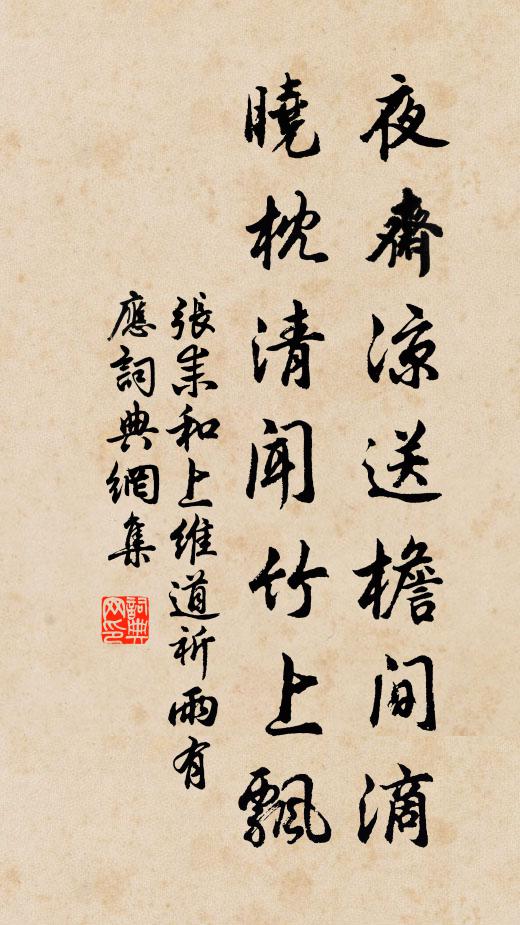 夜齋涼送檐間滴
曉枕清聞竹上飄
張耒和上維道祈雨有
應詞典網集
詞典
网印